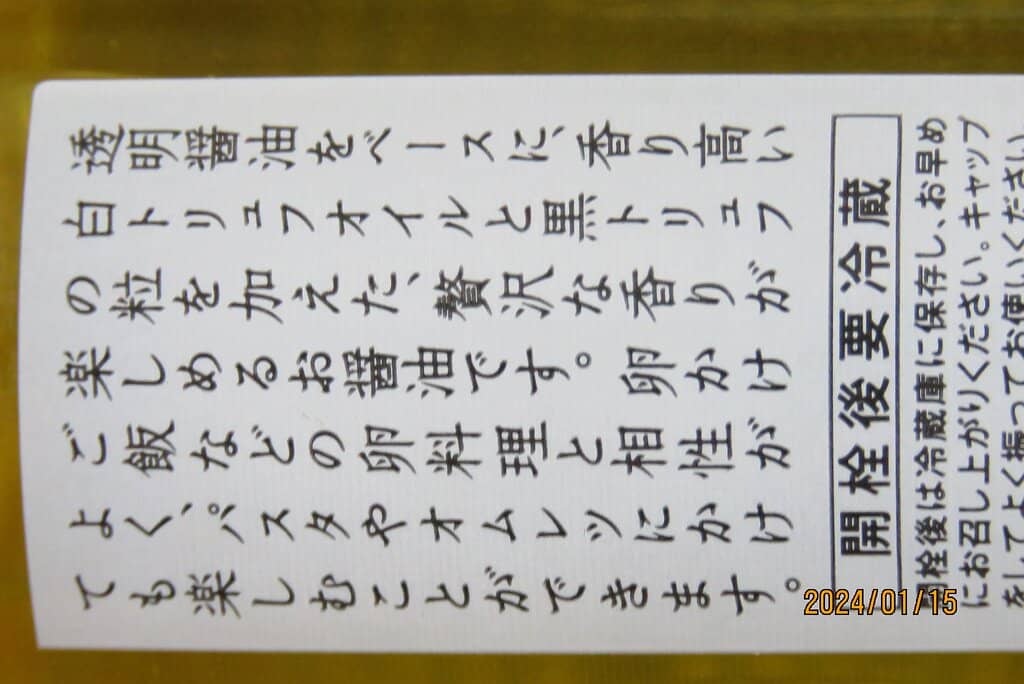 透明醤油をベースに、香り高い
白トリュフオイルと黒トリュフ
の粒を加えた、贅沢な香りが
楽しめるお醤油です。卵かけ
ご飯などの卵料理と相性が
よく、パスタやオムレツにかけ
ても楽しむことができます。
開栓後要冷蔵
開栓後は冷蔵庫に保存し、お早め
にお召し上がりください。キャップ
をしてよく振ってお使いください
2024/01/15